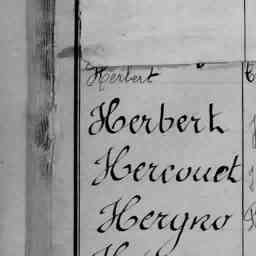 Herbert
Herbert
Hercouet
Hergno